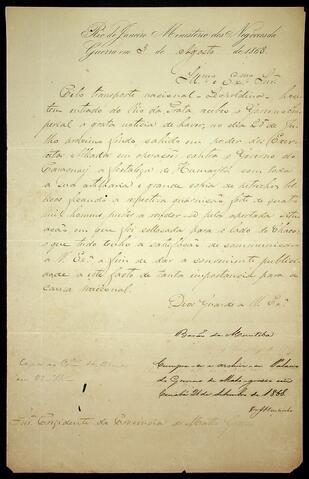 Rio de Janeiro Ministerio dos Negocios da
Guerra em 3 de Agosto de 1868.
Illmo e Exmo Snr.
Pelo transporte nacional - Leopoldina - hon-
tem entrado do Rio da Prata recebeu o Governo Im-
perial a grata noticia de haver, no dia 25 de Ju-
lho proximo findo, cahido em poder dos Exer-
citos Alliados em operações contra o Governo do
Paraguay a fortaleza de Humaitá com toda
a sua artilharia e grande copia de petrechos bel-
licos ficando a respectiva guarnição forte de quatro
mil homens prestes a render-se pela apertada situ-
ação em que foi collocada para o lado do Chaco;
o que tudo tenho a satisfação de communicar
a V. Exa. a fim de dar a conveniente publici-
dade a este facto de tanta importancia para a
causa nacional.
Deos Guarde a V. Exa.
Barão de Muritiba
Cumpra-se e archive-se. Palacio
do Governo de Mato-grosso em
Cuiabá 21 de Setembro de 1868
Snr. Presidente da Provincia de Matto Grosso